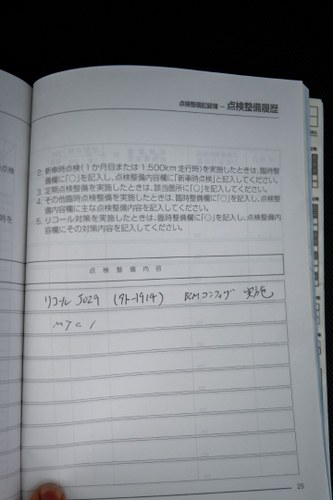 点検整備記録簿 − 点検整備履歴
2. 新車時点検(1か月目または1,500km走行時)を実施したときは、臨時整
備欄に「○」を記入し、点検整備内容欄に「新車時点検」と記入してください。
3. 定期点検整備を実施したときは、該当箇所に「○」を記入してください。
4. その他臨時点検整備を実施したときは、臨時整備欄に「○」を記入し、点検整
備内容欄に主な点検整備内容を記入してください。
5. リコール対策を実施したときは、臨時整備欄に「○」を記入し、点検整備内
容欄にその対策内容を記入してください。
点検整備内容
リコール J029 (外-1914) BCMコンフィグ 実施
25